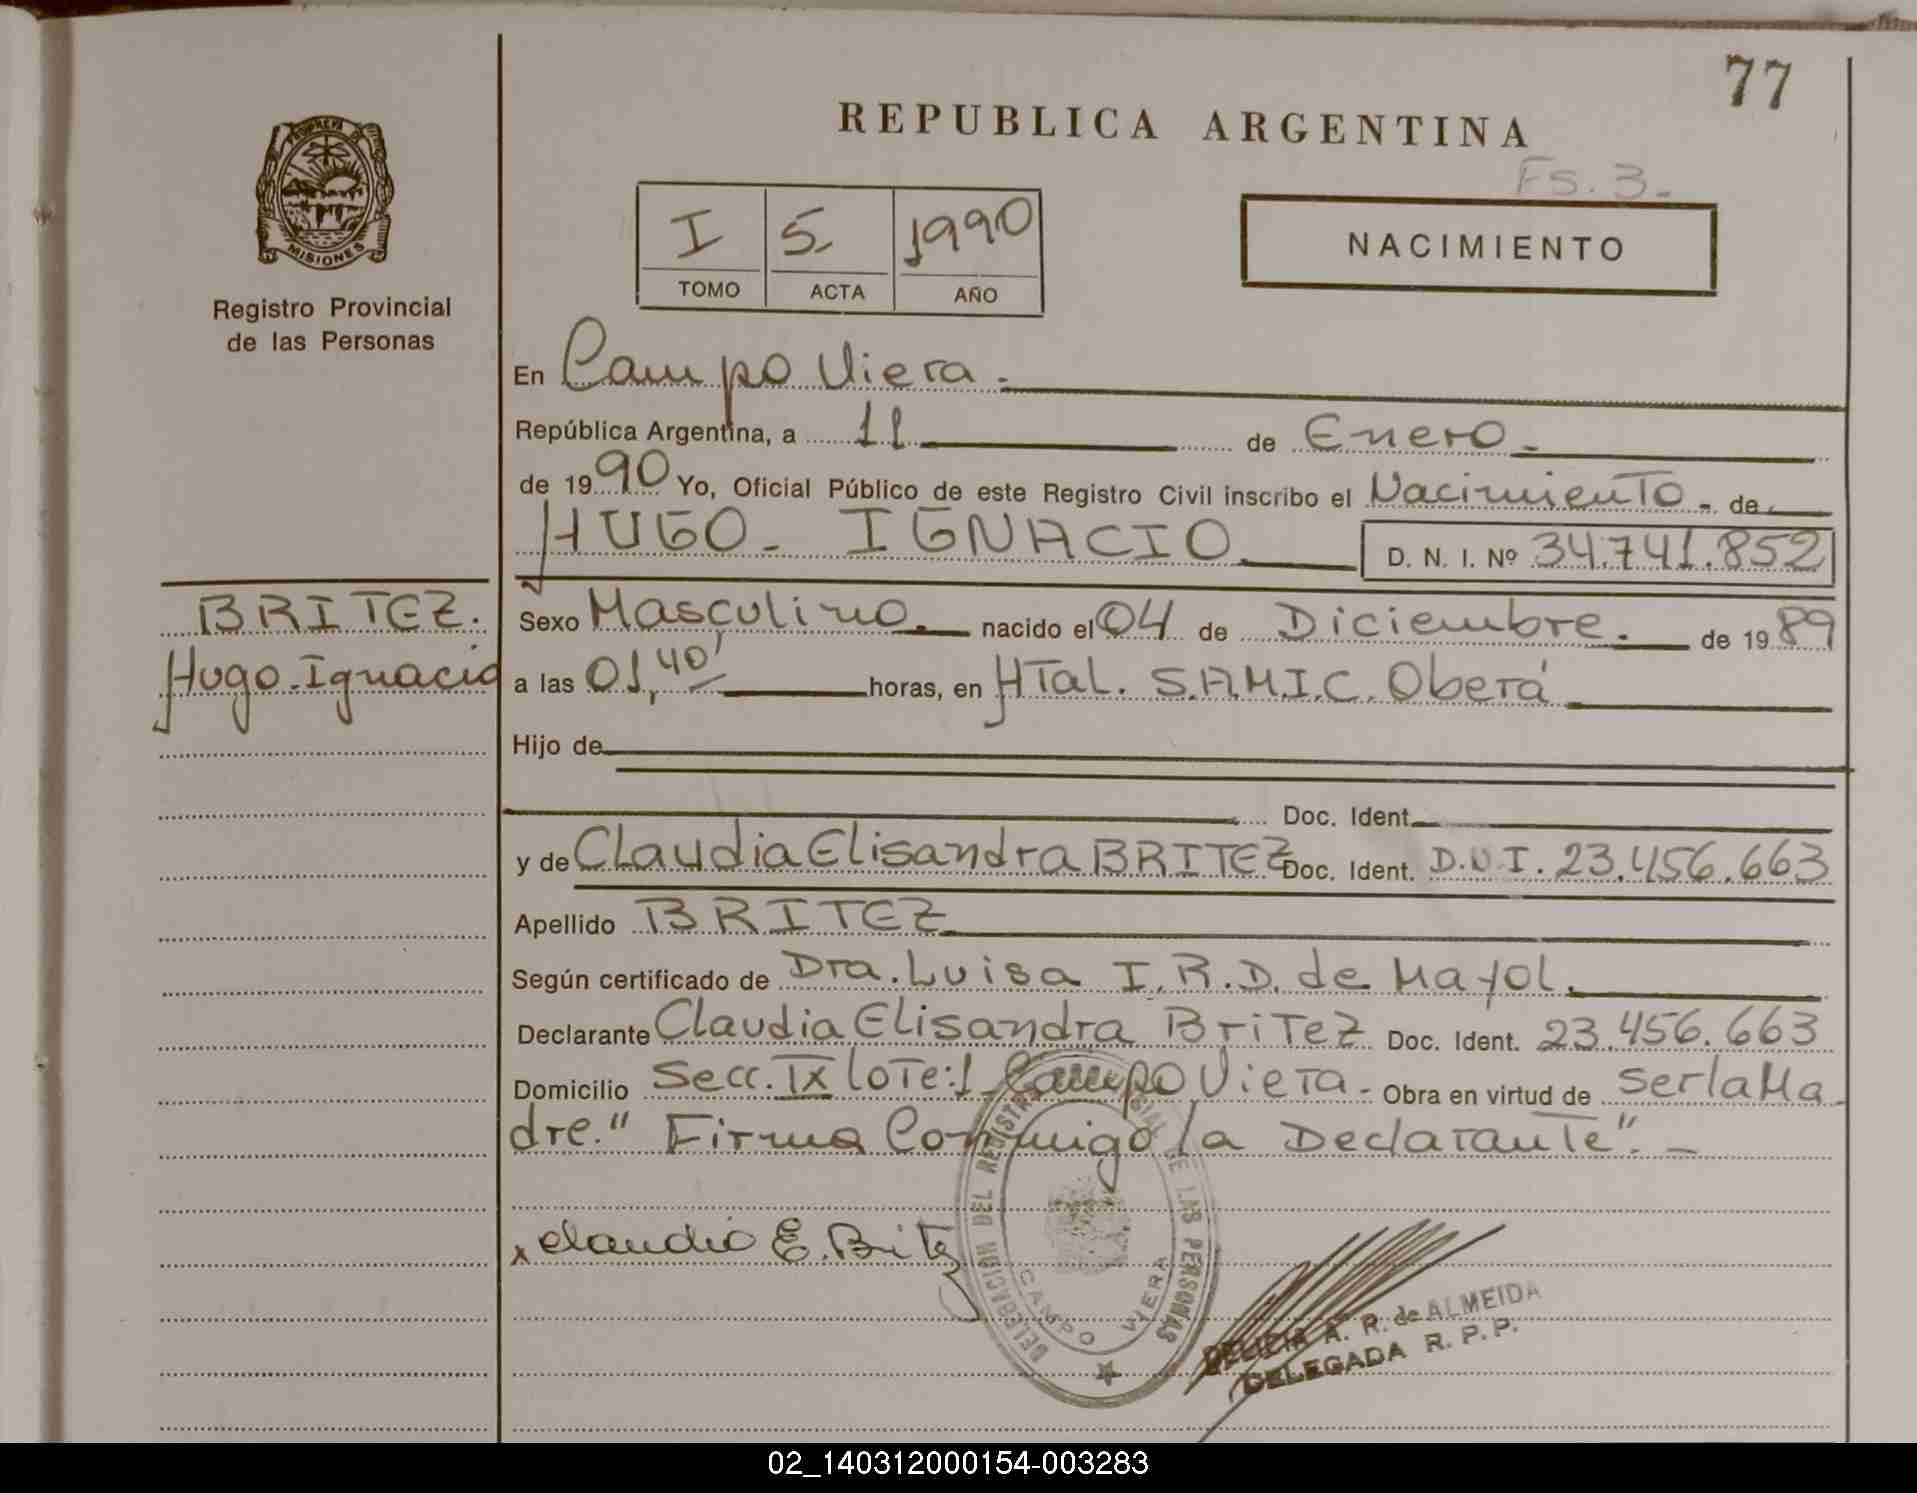 77
REPUBLICA ARGENTINA
Fs. 3.-
I 5 1990
TOMO ACTA AÑO
NACIMIENTO
MISIONES
Registro Provincial
de las Personas
En Campo Viera.-
República Argentina, a 11 de Enero.-
de 1990 Yo, Oficial Público de este Registro Civil inscribo el Nacimiento.- de
HUGO- IGNACIO D. N. I. Nº 34.741.852
BRITEZ.
Hugo.Ignacio
Sexo Masculino. nacido el 04 de Diciembre. de 1989
a las 01,40' horas, en HTal. S.A.M.I.C. Oberá
Hijo de
Doc. Ident.
y de Claudia Elisandra BRITEZ Doc. Ident. D.N.I. 23.456.663
Apellido BRITEZ
Según certificado de Dra. Luisa I.R.D. de Mayol.
Declarante Claudia Elisandra BriTeZ Doc. Ident. 23.456.663
Domicilio Secc. IX loTe:1 Campo Viera.- Obra en virtud de ser la Ma-
dre." Firma Conmigo la DeclaranTe".-
x Claudia E. Britez
DELEGACION DEL REGISTRO PROVINCIAL DE LAS PERSONAS
CAMPO VIERA
DELICIA A. R. de ALMEIDA
DELEGADA R. P. P.
02_140312000154-003283